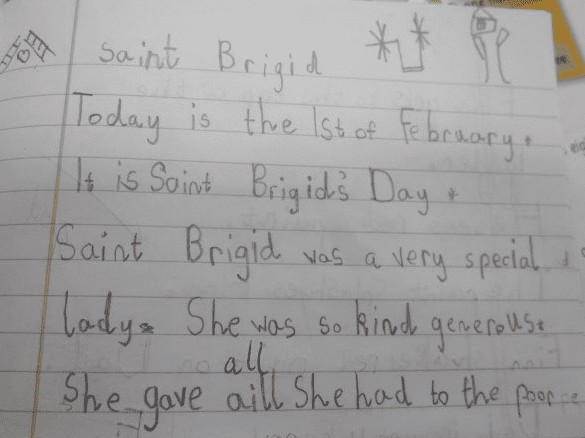 Saint Brigid
Today is the 1st of February.
It is Saint Brigid's Day.
Saint Brigid was a very special
lady. She was so kind generous.
all
She gave aill She had to the poor